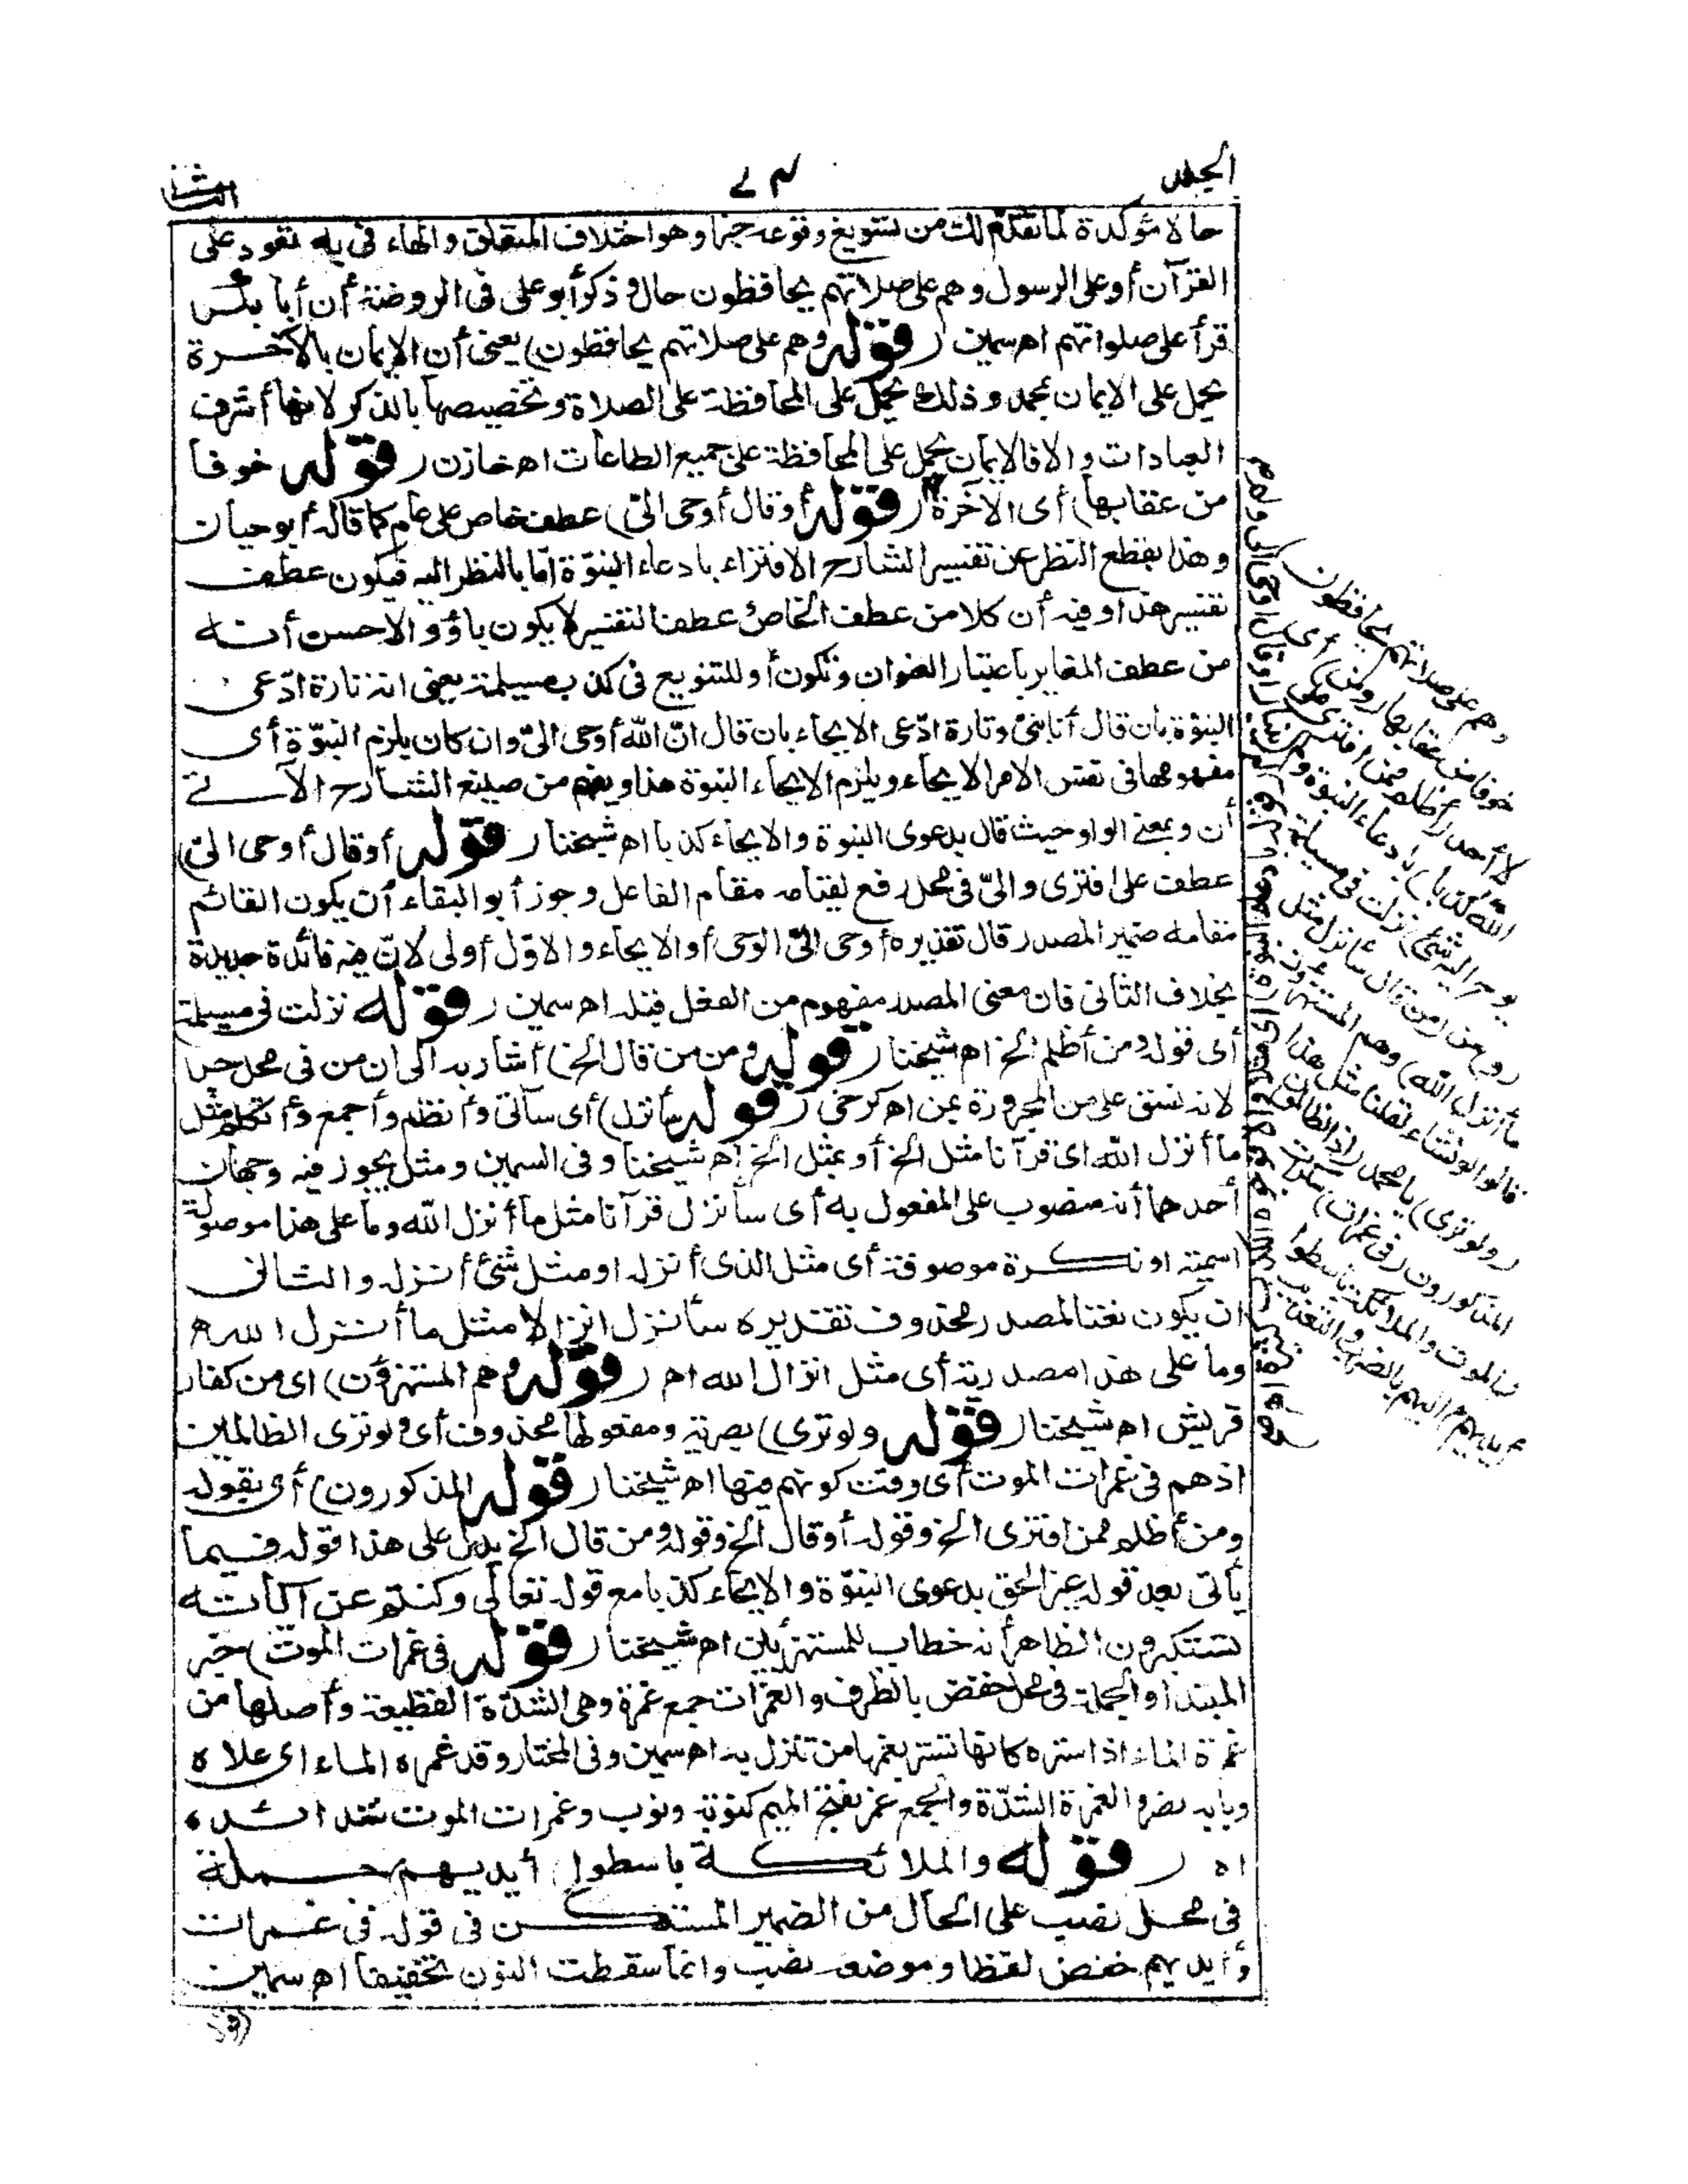 الجلد
٧٤
الثانى
حالا مؤكدة لما تقدم لك من تسويغ وقوعه خبرا وهو اختلاف المتعلق والهاء فى به تعود على
القرآن أو على الرسول وهم على صلاتهم يحافظون حال وذكر أبو على فى الروضة أن أبا بكر
قرأ على صلواتهم اه سمين (قوله وهم على صلاتهم يحافظون) يعنى أن الايمان بالآخرة
يحمل على الايمان بمحمد وذلك يحمل على المحافظة على الصلاة وتخصيصها بالذكر لانها أشرف
العبادات والا فالايمان يحمل على المحافظة على جميع الطاعات اه خازن (قوله خوفا
من عقابها) أى الآخرة (قوله أو قال أوحى الىّ) عطف خاص على عام كما قاله أبو حيان
وهذا بقطع النظر عن تفسير الشارح الافتراء بادعاء النبوّة امّا بالنظر اليه فيكون عطف
تفسير هذا وفيه أن كلا من عطف الخاص وعطف التفسير لا يكون بأو والاحسن أنه
من عطف المغاير باعتبار العنوان وتكون أو للتنويع فى كذب مسيلمة يعنى انه تارة ادّعى
النبوّة بأن قال أنا نبىّ وتارة ادّعى الايحاء بان قال انّ الله أوحى الىّ وان كان يلزم النبوّة أى
مفهومها فى نفس الامر الايحاء ويلزم الايحاء النبوة هذا ويفهم من صنيع الشارح الآتى
أن أو بمعنى الواو حيث قال بدعوى النبوة والايحاء كذبا اه شيخنا (قوله أو قال أوحى الىّ)
عطف على افترى والىّ فى محل رفع لقيامه مقام الفاعل وجوز أبو البقاء أن يكون القائم
مقامه ضمير المصدر قال تقديره أوحى الىّ الوحى أو الايحاء والاوّل أولى لانّ فيه فائدة جديدة
بخلاف الثانى فان معنى المصدر مفهوم من الفعل قبله اه سمين (قوله نزلت فى مسيلمة)
أى قوله ومن أظلم الخ اه شيخنا (قوله ومن من قال الخ) أشار به الى ان من فى محل جر
لانه نسق على من المجرورة بمن اه كرخى (قوله سأنزل) أى سآتى وأنظم وأجمع وأتكلم مثل
ما أنزل الله اى قرآنا مثل الخ أو بمثل الخ اه شيخنا وفى السمين ومثل يجوز فيه وجهان
أحدهما أنه منصوب على المفعول به أى سأنزل قرآنا مثل ما أنزل الله وما على هذا موصولة
اسمية او نكرة موصوفة أى مثل الذى أنزله او مثل شئ أنزله والثانى
ان يكون نعتا لمصدر محذوف تقديره سأنزل انزالا مثل ما أنزل الله
وما على هذا مصدرية أى مثل انزال الله اه (قوله وهم المستهزؤن) اى من كفار
قريش اه شيخنا (قوله ولو ترى) بصرية ومفعولها محذوف أى ولو ترى الظالمين
اذ هم فى غمرات الموت أى وقت كونهم فيها اه شيخنا (قوله المذكورون) أى بقوله
ومن أظلم ممن افترى الخ وقوله أو قال الخ وقوله ومن قال الخ يدل على هذا قوله فيما
يأتى بعد قوله غير الحق بدعوى النبوّة والايحاء كذبا مع قوله تعالى وكنتم عن آياته
تستكبرون الظاهر أنه خطاب للمستهزئين اه شيخنا (قوله فى غمرات الموت) خبر
المبتدا والجملة فى محل خفض بالظرف والغمرات جمع غمرة وهى الشدّة الفظيعة وأصلها من
غمرة الماء اذا ستره كانها تستر بغمها من تنزل به اه سمين وفى المختار وقد غمره الماء اى علاه
وبابه نصر والغمرة الشدّة والجمع غمر بفتح الميم كنوبة ونوب وغمرات الموت شدائده
اه (قوله والملائكة باسطوا أيديهم) جملة
فى محل نصب على الحال من الضمير المستكن فى قوله فى غمرات
وأيديهم خفض لفظا وموضعه نصب وانما سقطت النون تخفيفا اه سمين
وهم على صلاتهم يحافظون)
خوفا من عقابها (ومن) أى
لا أحد (أظلم ممن افترى على
الله كذبا) بادعاء النبوة ولم
يوح اليه شئ) نزلت فى مسيلمة
(و) من (من قال سأنزل مثل
ما أنزل الله) وهم المستهزؤن
قالوا لو نشاء لقلنا مثل هذا
(ولو ترى) يا محمد (اذ الظالمون)
المذكورون (فى غمرات) سكرات
(الموت والملائكة باسطوا
أيديهم) اليهم بالضرب والتعذيب